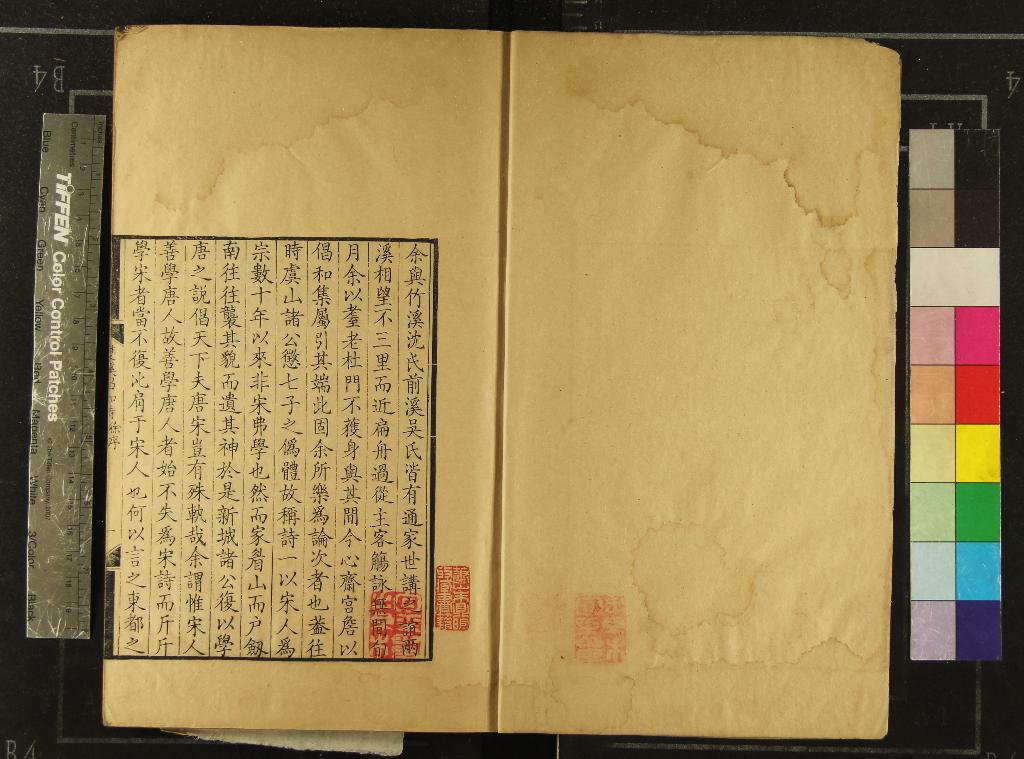 余與竹溪沈氏前溪吳氏皆有通家世講之誼兩
溪相望不三里而近扁舟過從主客觴詠無間旬
月余以耋老杜門不獲身與其間今心齋宮詹以
倡和集屬引其端此固余所樂為論次者也蓋往
時虞山諸公懲七子之僞體故稱詩一以宋人為
宗數十年以來非宋弗學也然而家眉山而户劔
南往往襲其貌而遺其神於是新城諸公復以學
唐之説倡天下夫唐宋豈有殊軌哉余謂惟宋人
善學唐人故善學唐人者始不失為宋詩而斤斤
學宋者當不復比肩于宋人也何以言之東都之
TIFFEN Color Control Patches
Centimetres
Inches
Blue
Cyan
Green
Yellow
Red
Magenta
White
3/Color
Black
B4
B4